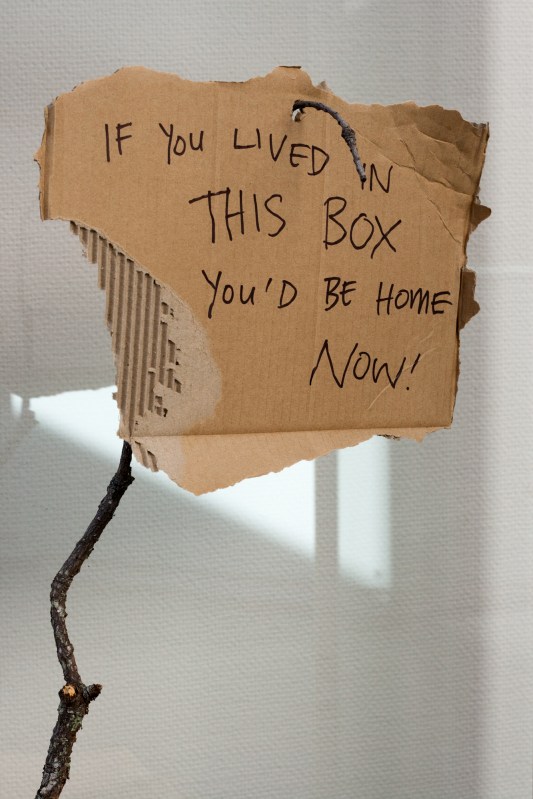 IF YOU LIVED IN
THIS BOX
YOU'D BE HOME
NOW!